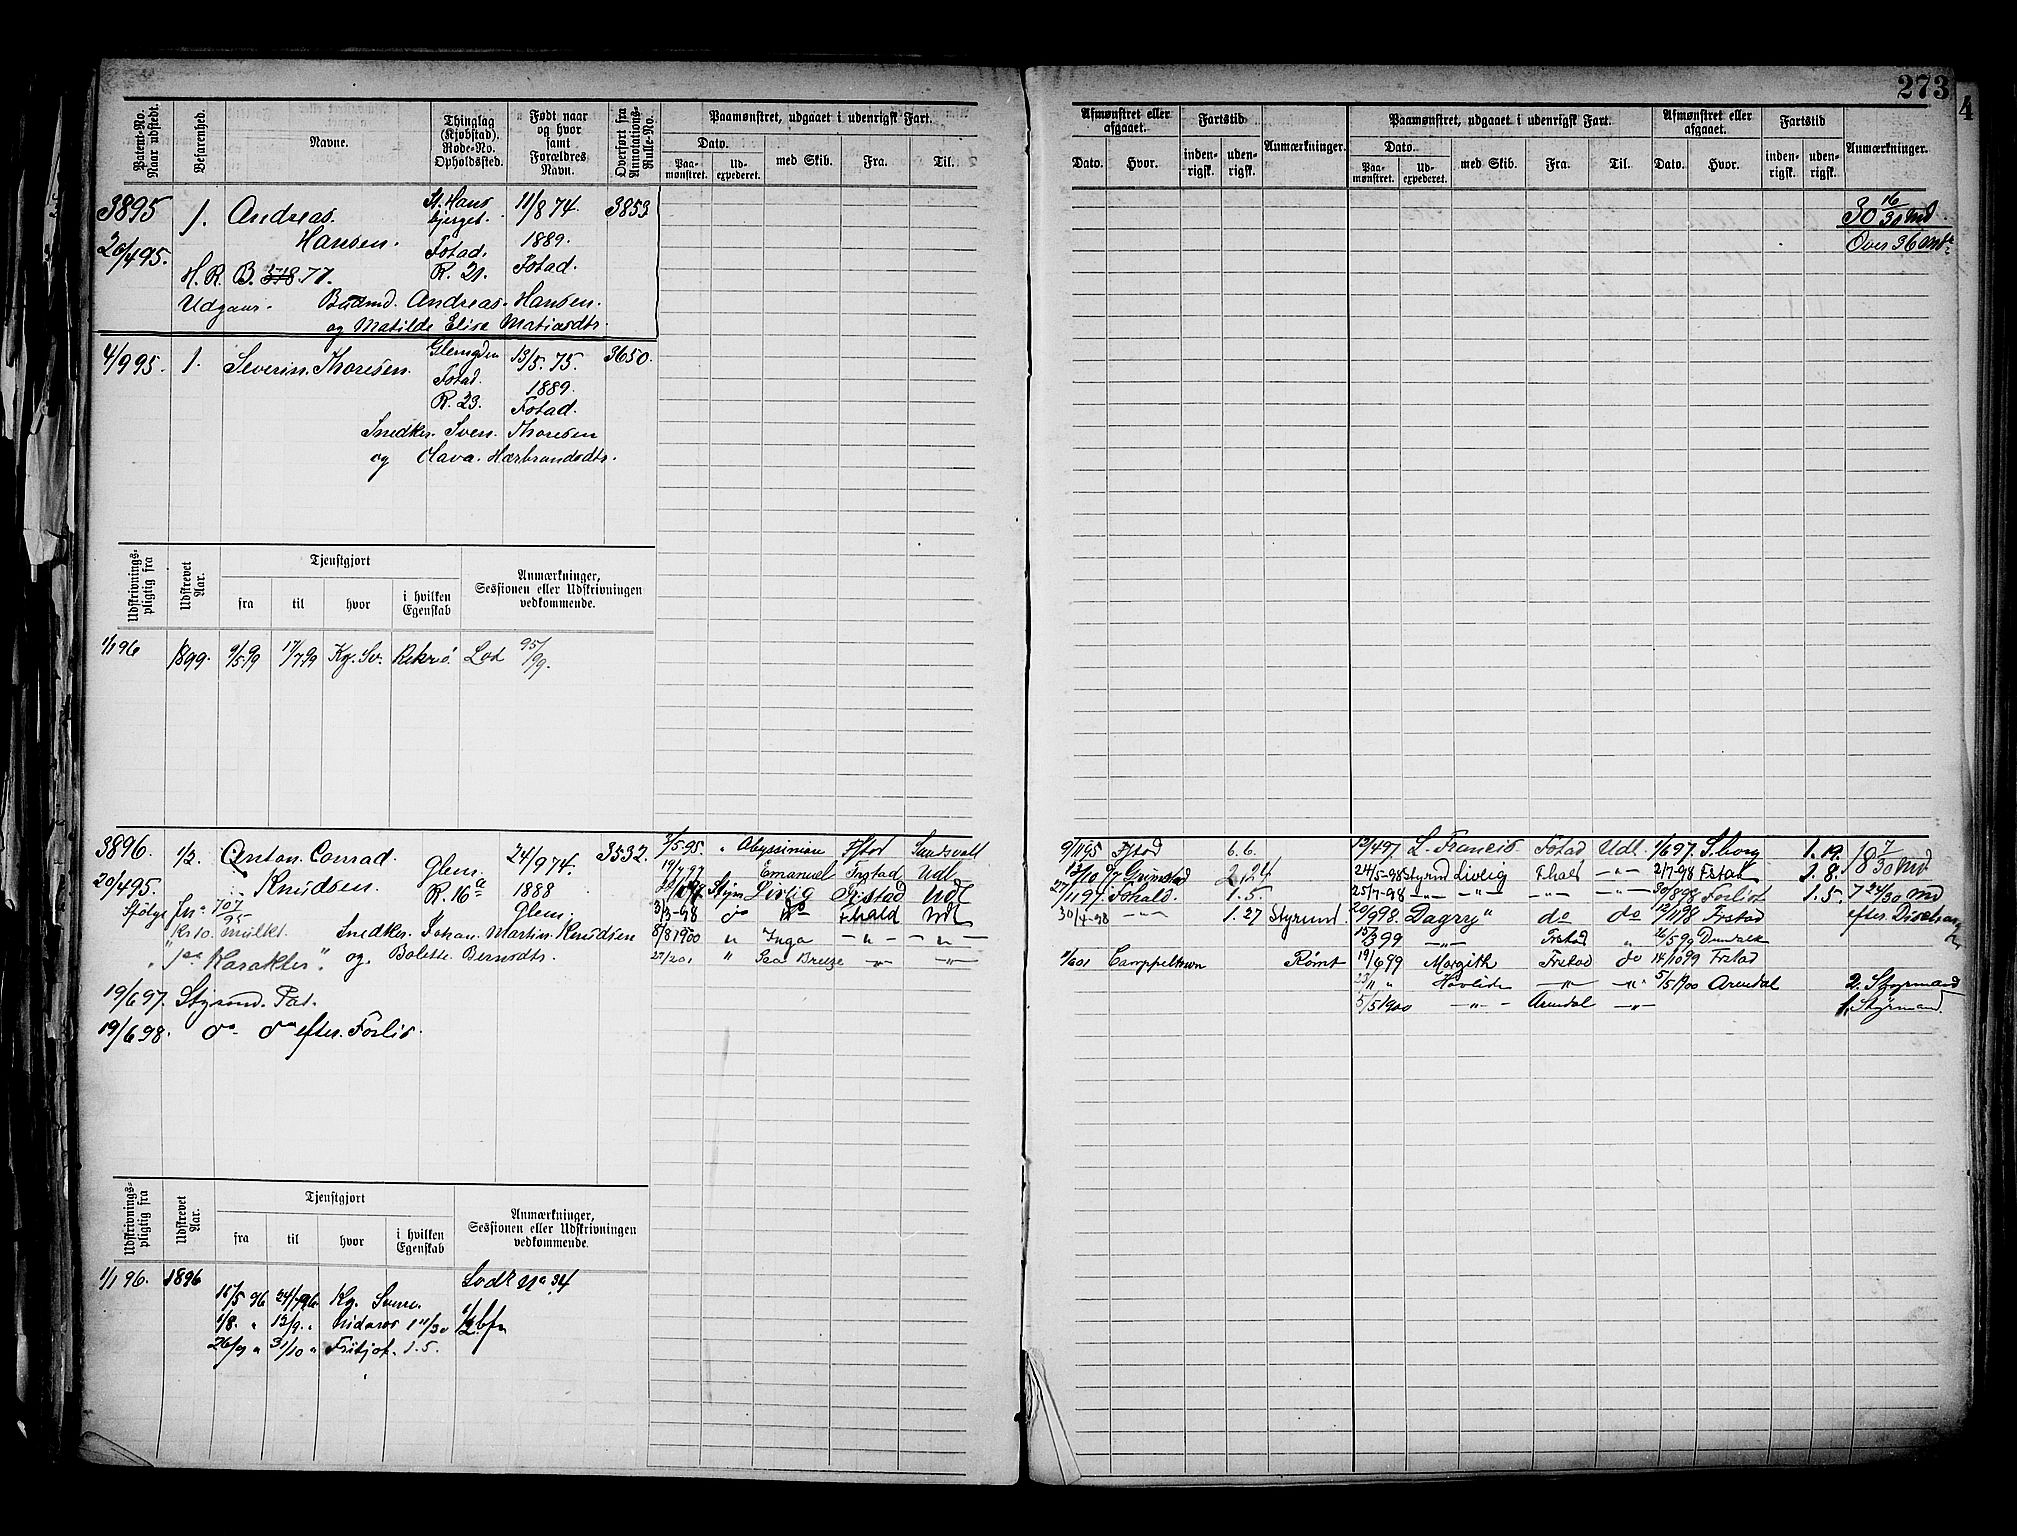 273
4
Patent-No. Naar udstedt.
Befarenhed.
Navne.
Thinglag (Kjøbstad). Rode-No. Opholdssted.
Født naar og hvor samt Forældres Navn.
Overført fra Annotations-Rulle-No.
Paamønstret, udgaaet i udenrigsk Fart.
Dato.
Paa-mønstret.
Ud-expederet.
med Skib.
Fra.
Til.
Afmønstret eller afgaaet.
Dato.
Hvor.
Fartstid
inden-rigsk.
uden-rigsk.
Anmærkninger.
Paamønstret, udgaaet i udenrigsk Fart.
Dato.
Paa-mønstret.
Ud-expederet.
med Skib.
Fra.
Til.
Afmønstret eller afgaaet.
Dato.
Hvor.
Fartstid
inden-rigsk.
uden-rigsk.
Anmærkninger.
3895 1. Andreas St. Hans 11/8 74. 3853
30 16/30 Md
20/4 95. Hansen. Fstad. 1889.
Over 36 Md
H. R. B. 77. R. 21. Fstad.
Udgaar. Andreas Hansen.
og Matilde Elise
4/9 95. 1. Severin Thoresen. 13/5. 75. 3650.
Fstad. 1889.
R. 23. Fstad.
Snedker Sven Thoresen
og Olava
Udskrivnings-pligtig fra
Udskrevet Aar.
Tjenstgjort
fra
til
hvor
i hvilken Egenskab
Anmærkninger, Sessionen eller Udskrivningen vedkommende.
1/1 96 1899. 9/5 99 17/7 99 Kg. Sv. Lod 95/99.
3896. 1/2. Anton Conrad Glem. 24/9 74. 3532.
20/4 95. Knudsen. R. 16a 1888
Glem.
Ifølge Jn 707/95
Kr 10. mulkt. Snedker Johan Martin Knudsen
og Bolette Berntdtr.
19/6 97. Styrmd. Pat.
19/6 98. do do efter Forlis.
3/5 95. " Abyssinian Fstad Sundsvall
19/7 97 Emanuel Frstad Udl
Styrm Livlig Fristad Udl
3/3-98 do do Fhald Udl
8/8 1900 " Inga -"- -"-
27/2 01 " Sea Breeze -"- -"-
9/11 95 Fstad 6.6.
13/10 97 Grimstad 2.24
27/11 97. Fhald. 1.5.
30/4-98 -"- 1.27 Styrmd.
Camppeltown Rømt
L. Francis Fstad Udl. 1/6 97. 1.19. 18 7/30 Md
24/5-98 Styrmd Livlig Fhald -"- 2/7-98 Fstad 1.8.
25/7-98 -"- -"- -"- 30/8 98 Forlist 1.5. 7 24/30 Md
20/9 98. Dagny do do 12/11 98 Frstad efter
15/3 99 -"- Frstad " 26/5 99 Dundalk
19/6 99 Margith Frstad do 14/10 99 Frstad
Havlide -"- -"- 5/5 1900 Arendal 2. Styrmand
5/5 1900 -"- Arendal -"- 1. Styrmand.
Udskrivnings-pligtig fra
Udskrevet Aar.
Tjenstgjort
fra
til
hvor
i hvilken Egenskab
Anmærkninger, Sessionen eller Udskrivningen vedkommende.
1/1 96. 1896 Lodz No 34
15/5 96 24/7 96 Kg. Sverre.
1/8. " 12/9. " Nidaros 1 11/30
26/9 " 31/10 " Fritjof. 1.5.